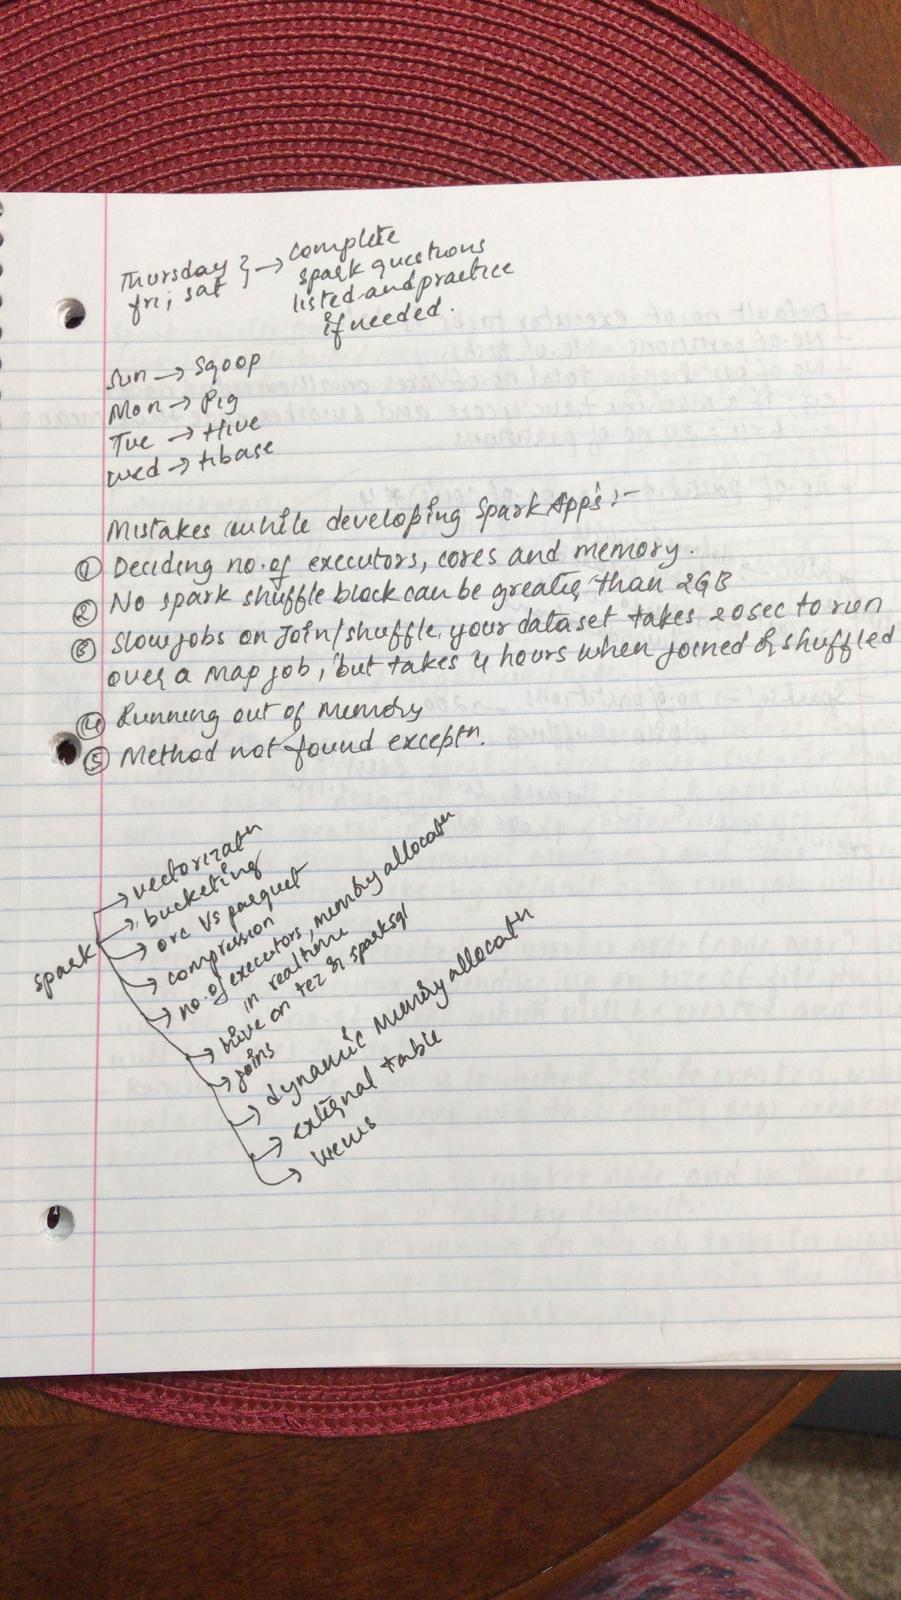 Thursday } → complete
fri, sat spark questions
listed and practice
if needed.
Sun → Sqoop
Mon → Pig
Tue → Hive
wed → Hbase
Mistakes while developing Spark Apps :-
① Deciding no. of executors, cores and memory.
② No spark shuffle block can be greater than 2GB
③ Slow jobs on Join/shuffle, your dataset takes 20sec to run
over a map job, but takes 4 hours when joined & shuffled
④ Running out of memory
⑤ Method not found exceptn.
spark
→ vectorizatn
→ bucketing
→ orc vs parquet
→ compression
→ no. of executors, memory allocatn
in realtime
→ hive on tez & sparksql
→ joins
→ dynamic memory allocatn
→ external table
→ views